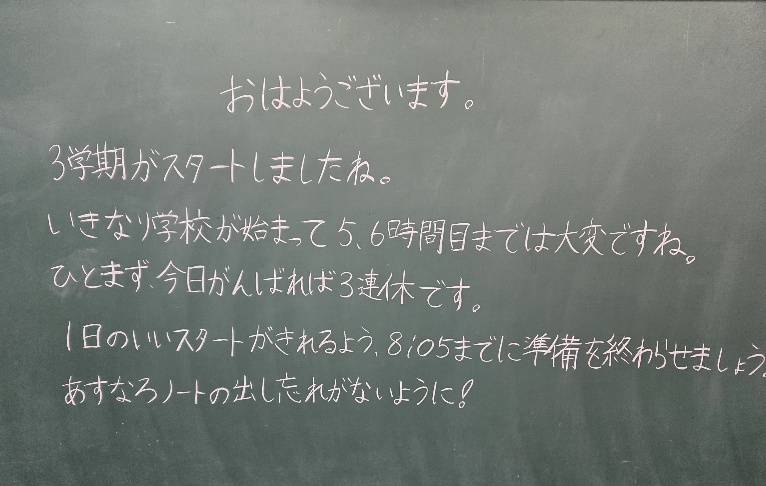 おはようございます。
3学期がスタートしましたね。
いきなり学校が始まって5、6時間目までは大変ですね。
ひとまず、今日がんばれば3連休です。
1日のいいスタートがきれるよう、8:05までに準備を終わらせましょう。
あすなろノートの出し忘れがないように!